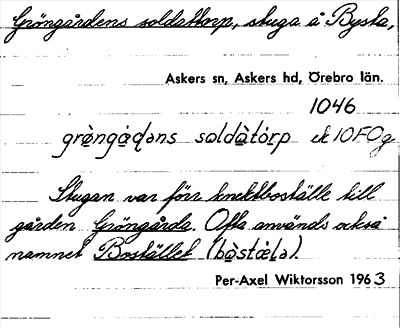 Gröngårdens soldattorp, stuga å Bysta,
Askers sn, Askers hd, Örebro län.
1046
grö̀ngàḍəns soldàtórp ek 10F0g
Stugan var förr knektboställe till
gården Gröngårda. Ofta används också
namnet Bostället (bòstæ̀lə).
Per-Axel Wiktorsson 1963